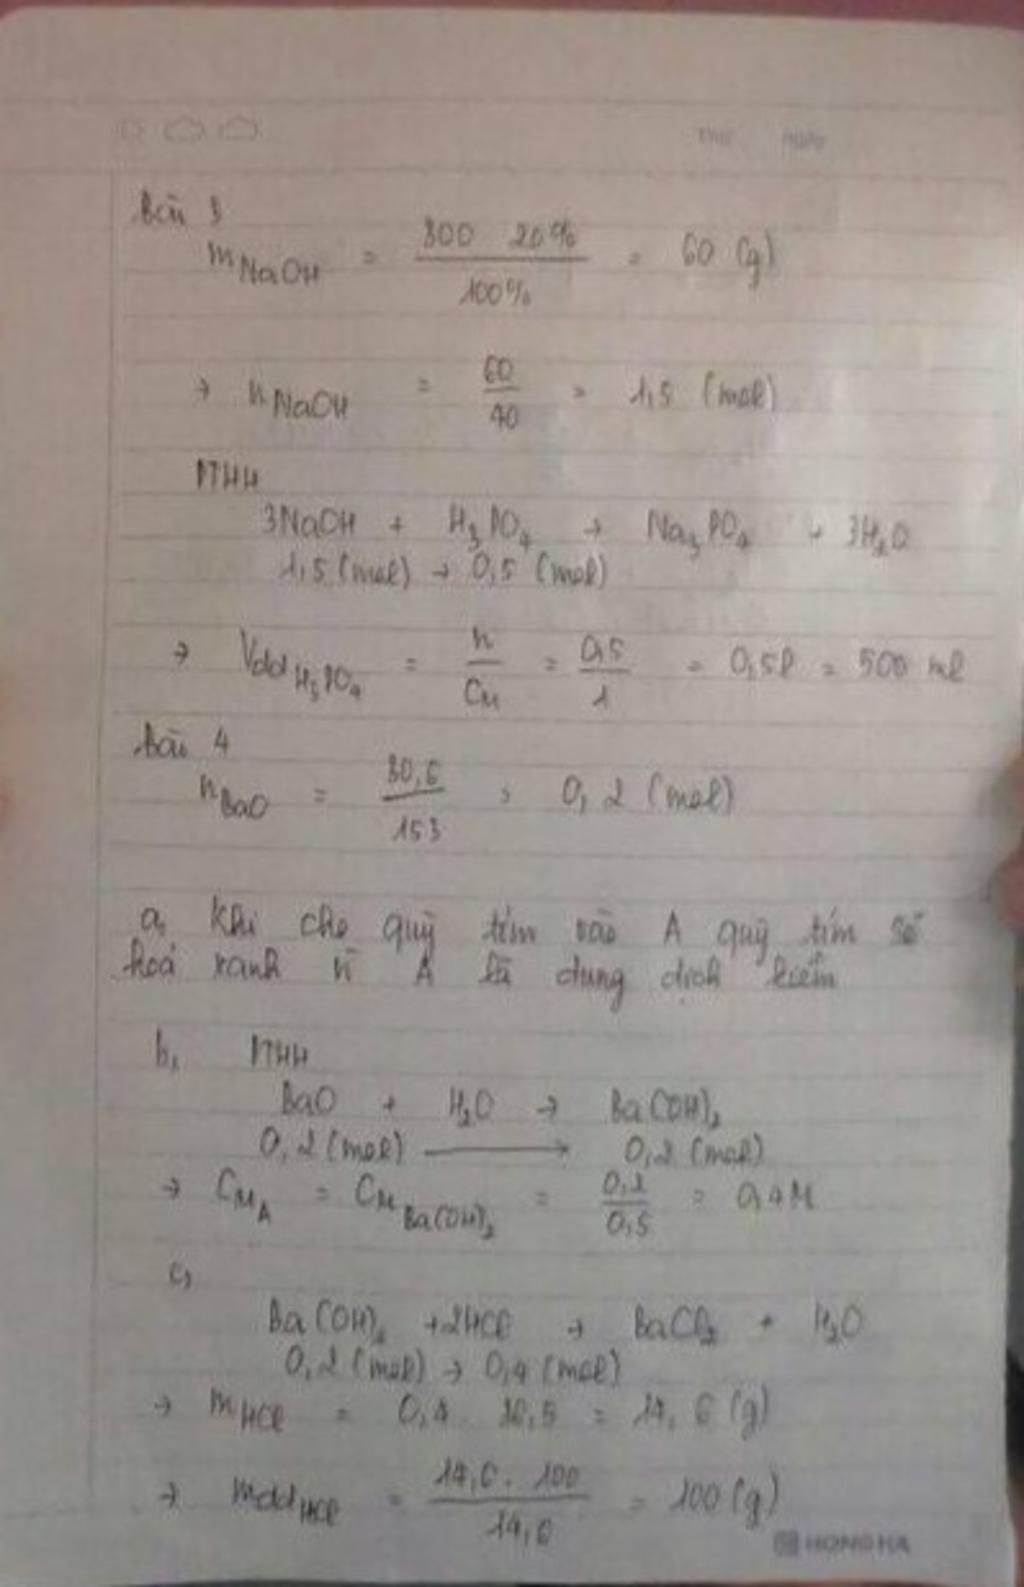 Bài 3
mNaOH = 300 20% / 100% = 60 (g)
→ nNaOH = 60 / 40 = 1,5 (mol)
PTHH
3NaOH + H3PO4 → Na3PO4 + 3H2O
1,5 (mol) → 0,5 (mol)
→ VddH3PO4 = n / CM = 0,5 / 1 = 0,5l = 500 ml
Bài 4
nBaO = 30,6 / 153 = 0,2 (mol)
a, Khi cho quỳ tím vào A quỳ tím sẽ
hoá xanh vì A là dung dịch kiềm
b, PTHH
BaO + H2O → Ba(OH)2
0,2 (mol) → 0,2 (mol)
→ CMA = CM Ba(OH)2 = 0,2 / 0,5 = 0,4M
c,
Ba(OH)2 + 2HCl → BaCl2 + H2O
0,2 (mol) → 0,4 (mol)
→ mHCl = 0,4 . 36,5 = 14,6 (g)
→ mddHCl = 14,6 . 100 / 14,6 = 100 (g)
HONG HA